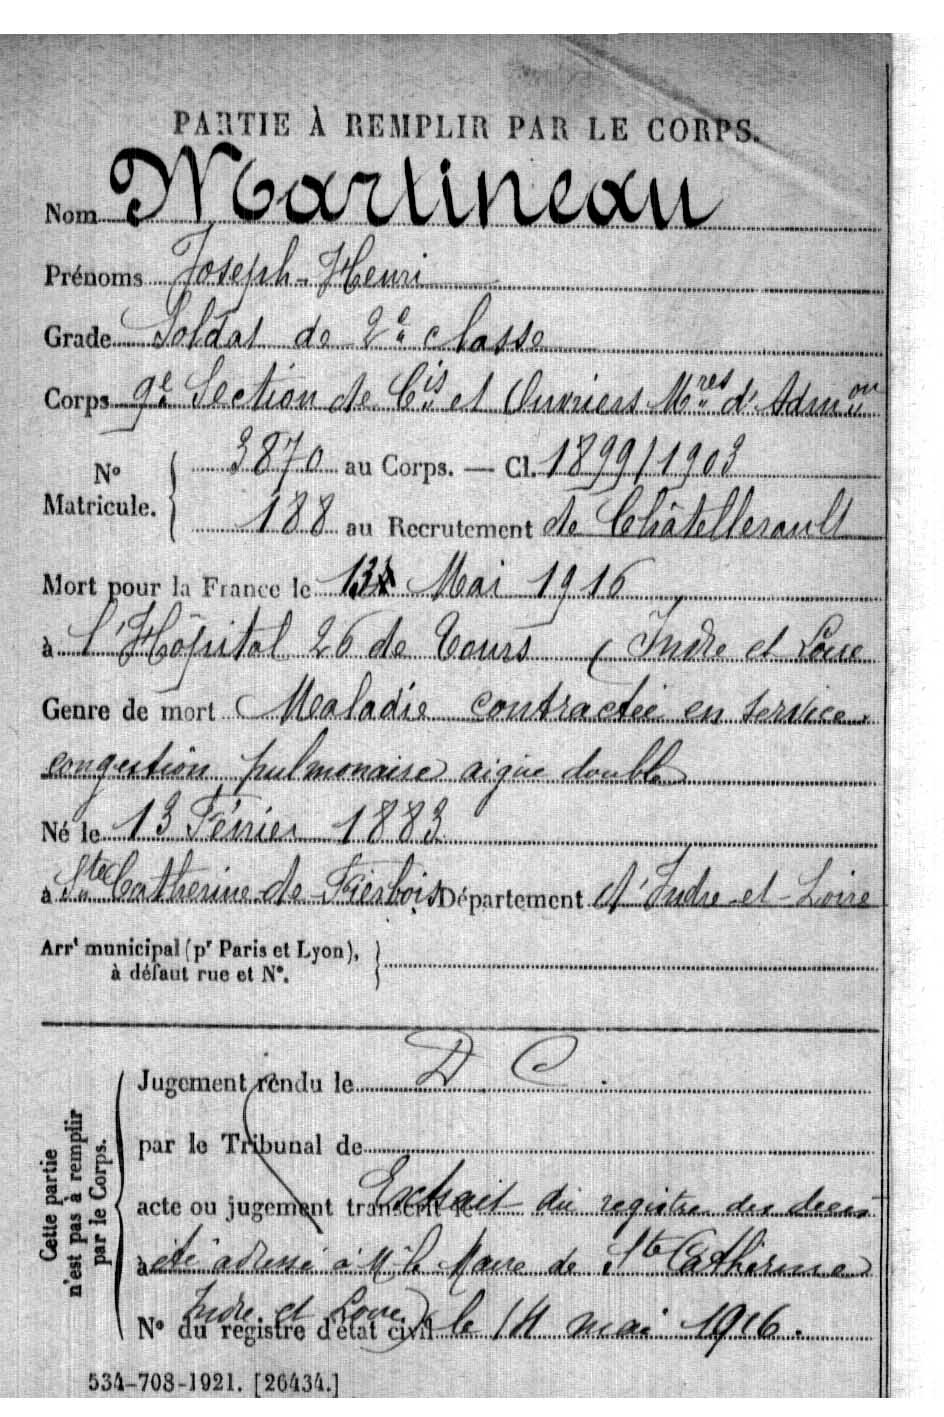 PARTIE À REMPLIR PAR LE CORPS.
Nom Martineau
Prénoms Joseph-Henri
Grade Soldat de 2e classe
Corps 9e Section de Cis et Ouvriers Mres d'Admon
No Matricule. 3870 au Corps. — Cl. 1899/1903
188 au Recrutement de Châtellerault
Mort pour la France le 13 Mai 1916
à l'Hôpital 26 de Tours (Indre et Loire
Genre de mort Maladie contractée en service,
congestion pulmonaire aigue double
Né le 13 Février 1883
à Ste Catherine de Fierbois Département d'Indre-et-Loire
Arrt municipal (pr Paris et Lyon),
à défaut rue et No.
Cette partie
n'est pas à remplir
par le Corps.
Jugement rendu le D C.
par le Tribunal de
acte ou jugement transcrit le Extrait du registre des décès
à été adressé à Mr le Maire de Ste Catherine
Indre et Loire)
No du registre d'état civil le 14 mai 1916.
534-708-1921. [26434.]